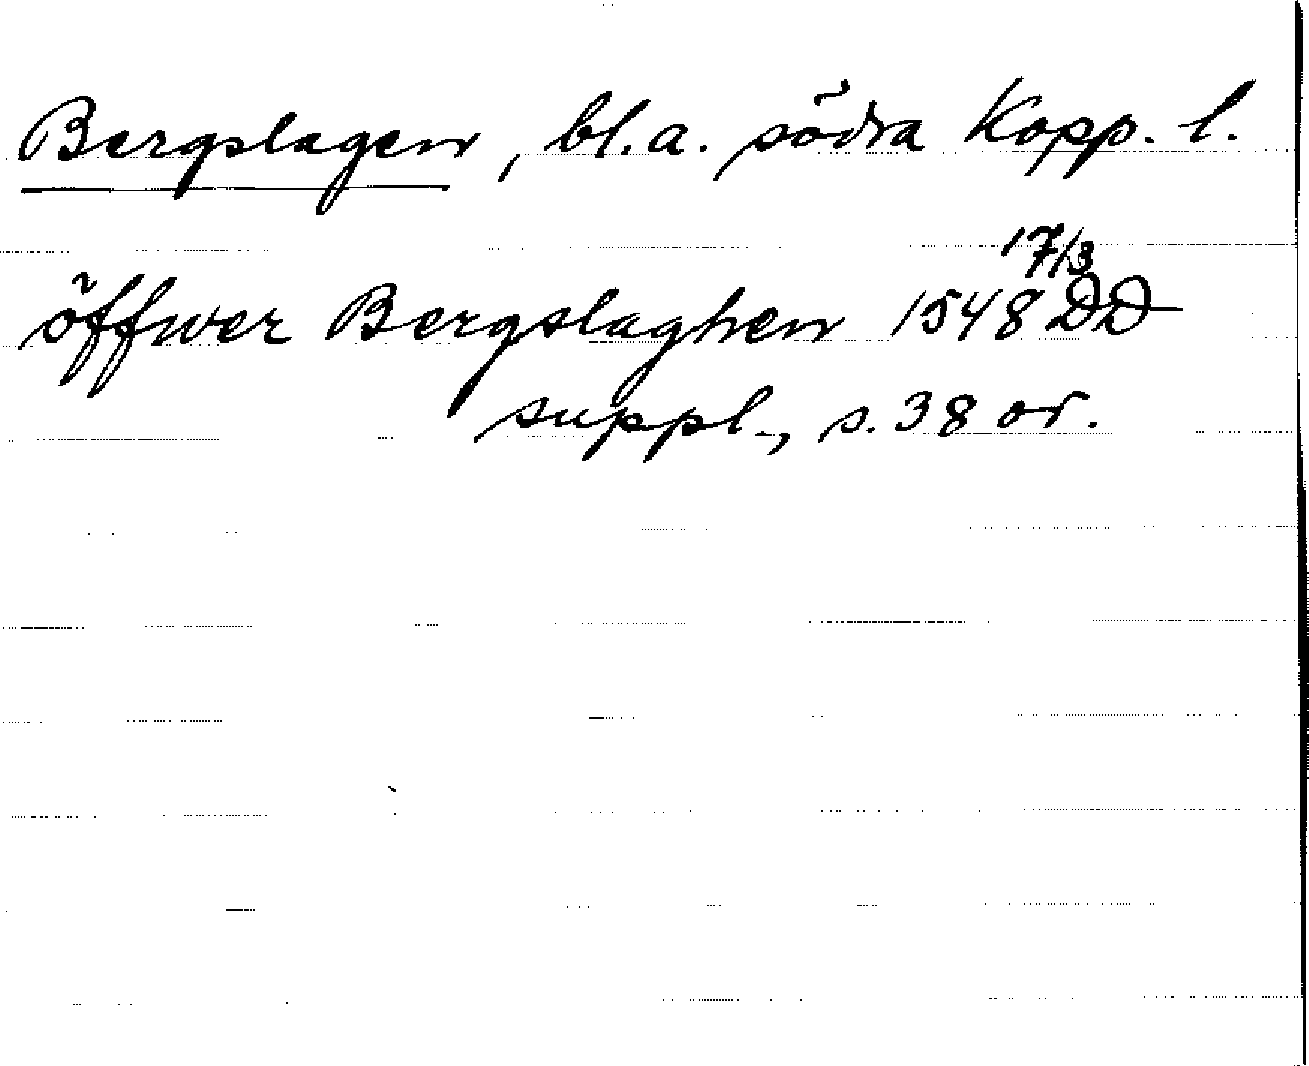 Bergslagen, bl.a. södra Kopp. l.
öffwer Bergslaghen 1548 17/3 DD
suppl., s. 38 or.